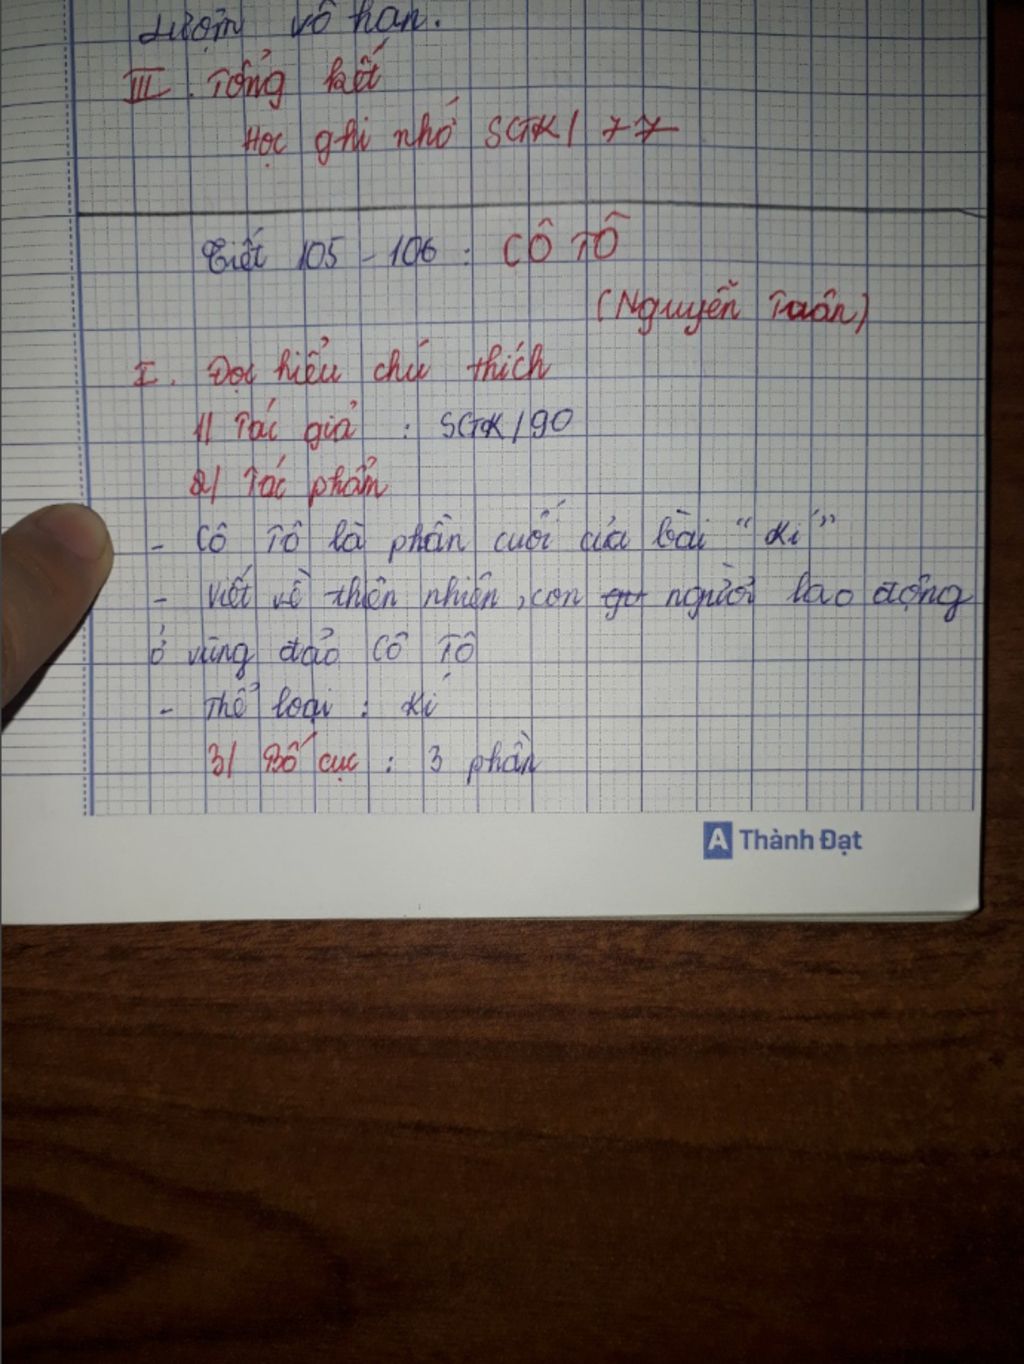 Lượm vô hạn.
III. Tổng kết
Học ghi nhớ SGK/ 77
Tiết 105 - 106 : CÔ TÔ
(Nguyễn Tuân)
I. Đọc hiểu chú thích
1/ Tác giả : SGK/90
2/ Tác phẩm
- Cô Tô là phần cuối của bài "Kí"
- Viết về thiên nhiên, con người lao động
ở vùng đảo Cô Tô
- Thể loại : Kí
3/ Bố cục : 3 phần
A Thành Đạt